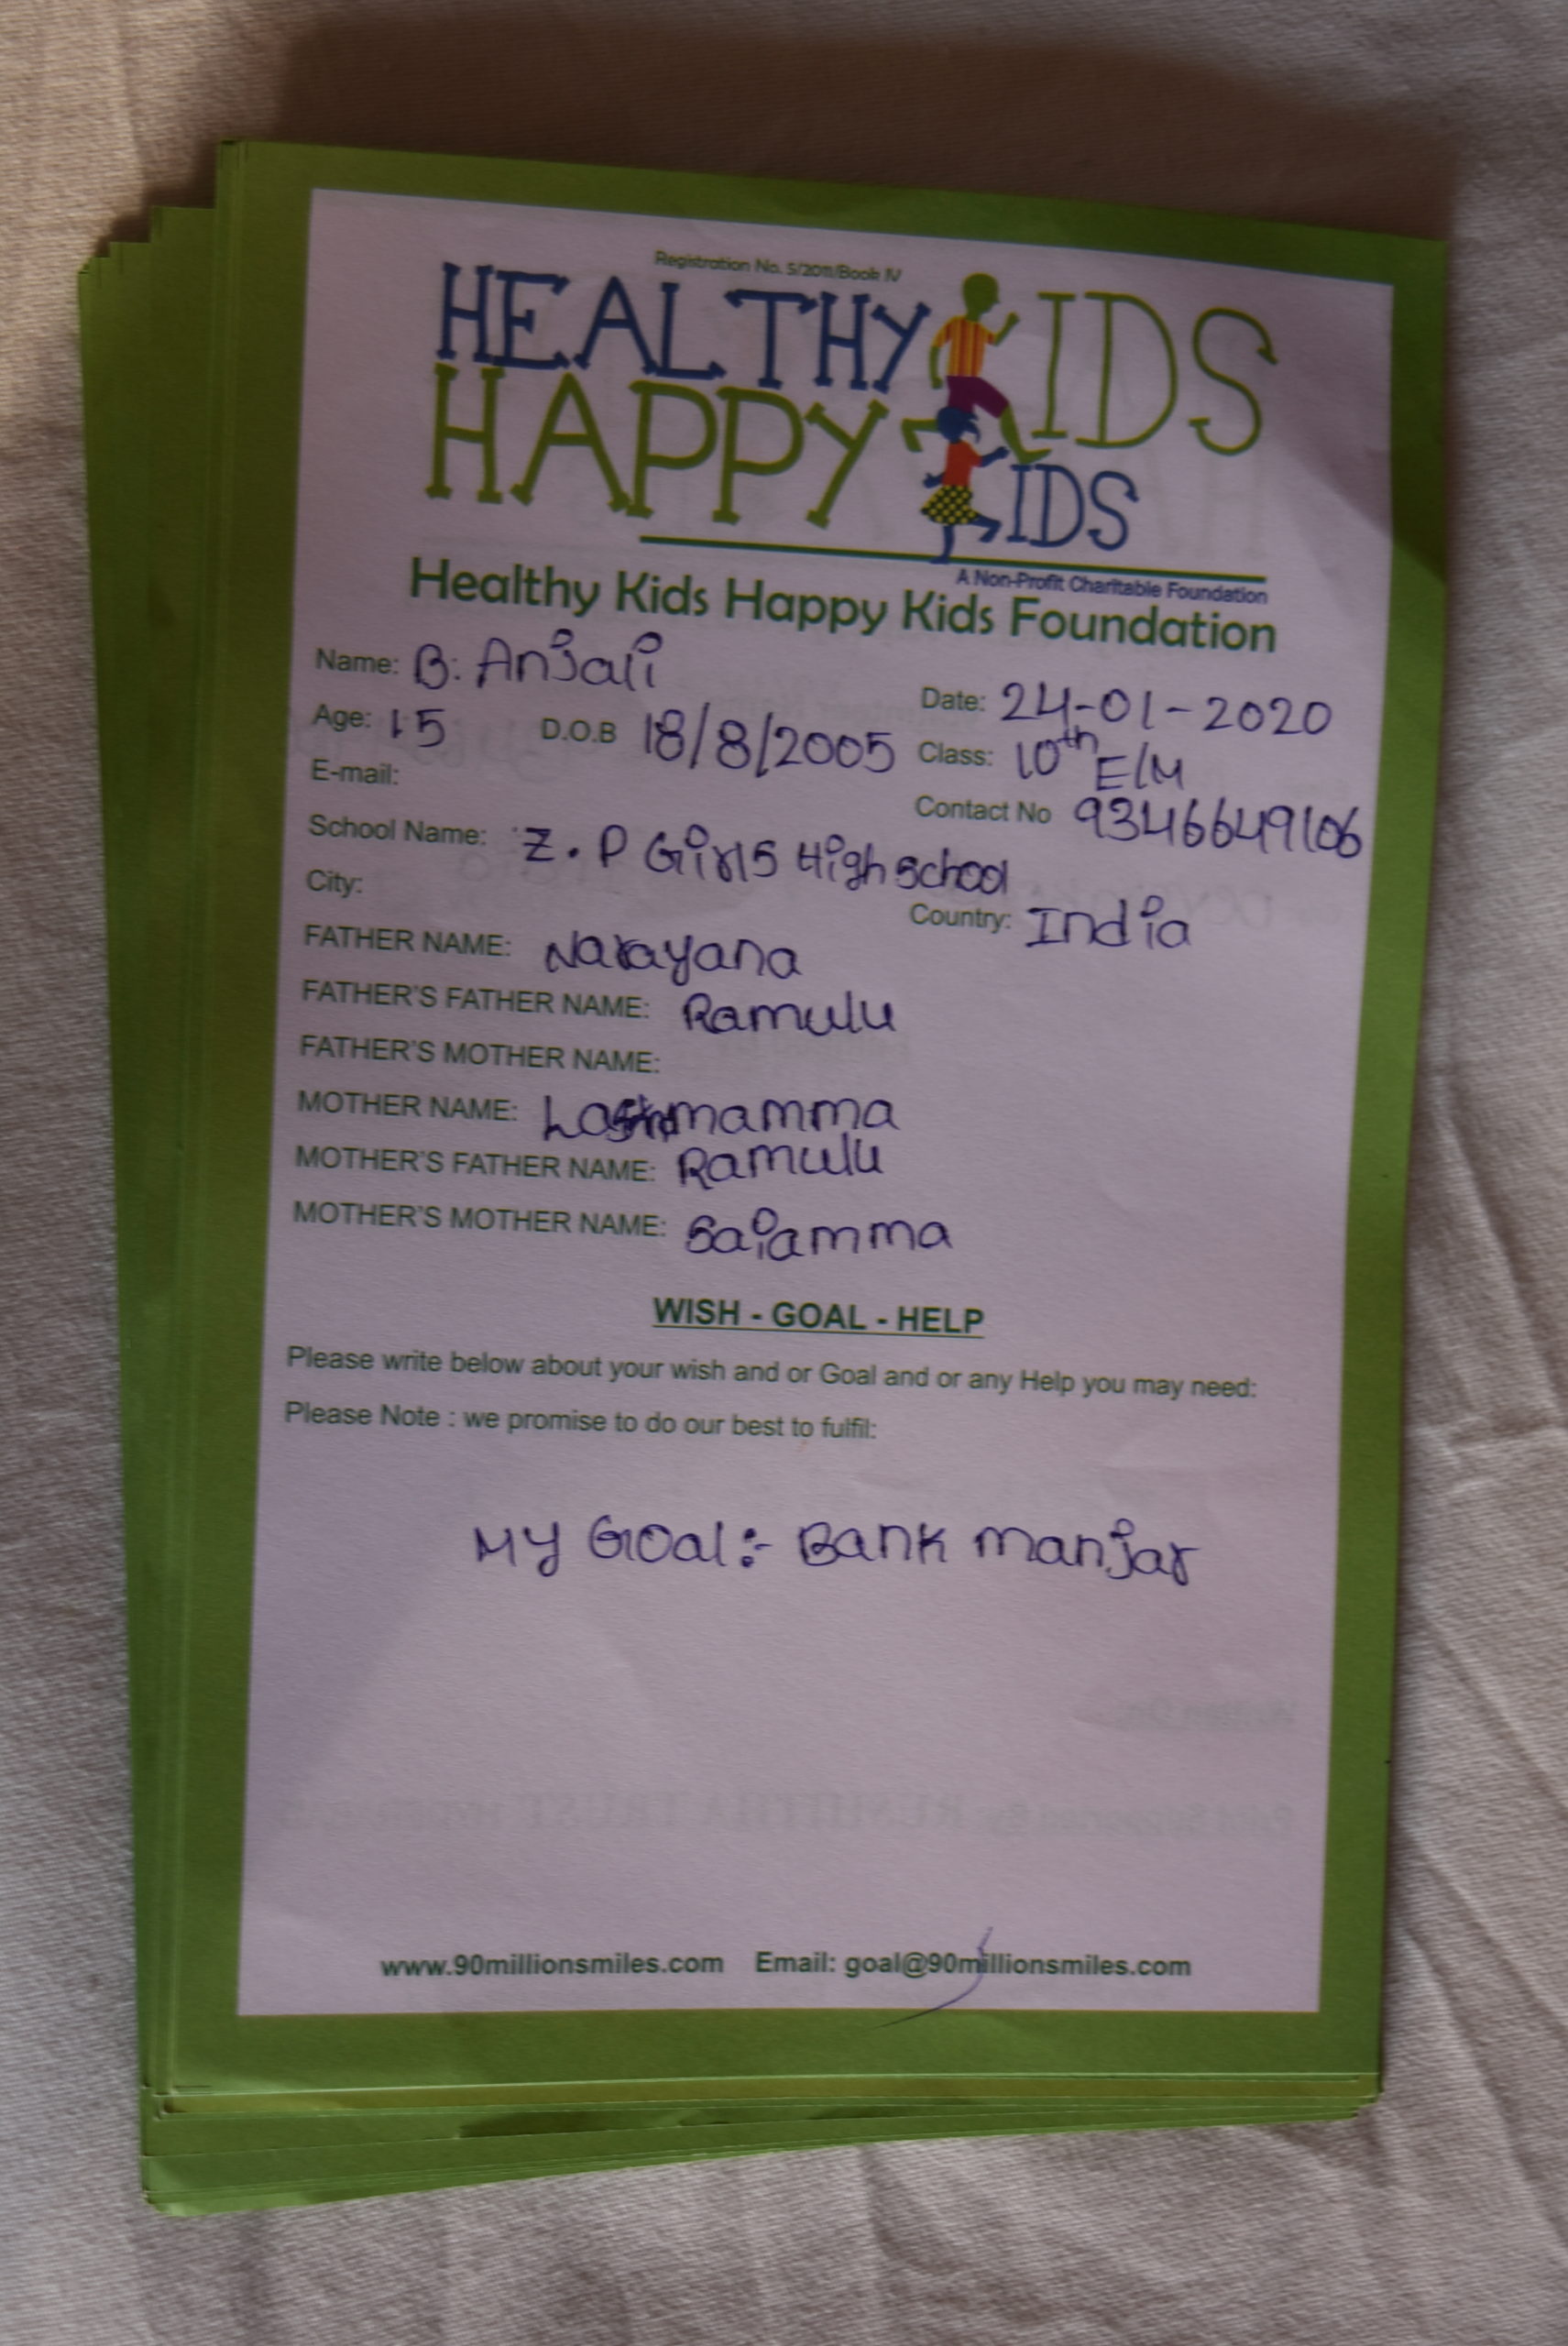 Registration No. 5/2011/Book IV
HEALTHY KIDS
HAPPY KIDS
A Non-Profit Charitable Foundation
Healthy Kids Happy Kids Foundation
Name: B. Anjali
Date: 24-01-2020
Age: 15 D.O.B 18/8/2005
Class: 10th E/M
E-mail:
Contact No 9346649106
School Name: Z.P Girls High school
City:
Country: India
FATHER NAME: Narayana
FATHER'S FATHER NAME: Ramulu
FATHER'S MOTHER NAME:
MOTHER NAME:
MOTHER'S FATHER NAME: Ramulu
MOTHER'S MOTHER NAME: Saiamma
WISH - GOAL - HELP
Please write below about your wish and or Goal and or any Help you may need:
Please Note : we promise to do our best to fulfil:
My Goal:- Bank manjar
www.90millionsmiles.com Email: goal@90millionsmiles.com